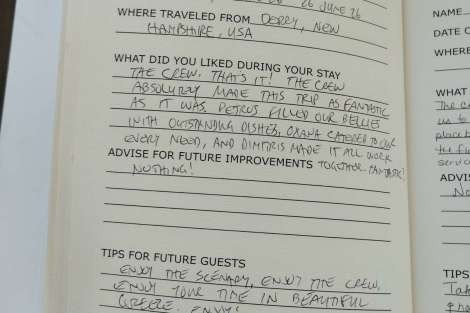 26 JUNE 26
WHERE TRAVELED FROM DERRY, NEW
HAMPSHIRE, USA
WHAT DID YOU LIKED DURING YOUR STAY
THE CREW. THAT'S IT! THE CREW
ABSOLUTELY MADE THIS TRIP AS FANTASTIC
AS IT WAS. PETROS FILLED OUR BELLIES
WITH OUTSTANDING DISHES, OXANA CATERED TO OUR
EVERY NEED, AND DIMITRIS MADE IT ALL WORK
ADVISE FOR FUTURE IMPROVEMENTS TOGETHER. FANTASTIC!
NOTHING!
TIPS FOR FUTURE GUESTS
ENJOY THE SCENARY, ENJOY THE CREW,
ENJOY YOUR TIME IN BEAUTIFUL
GREECE. ENJOY!
NAME
DATE O
WHERE
WHAT
The c
us to
place
the f
servic
ADVIS
No
TIPS
Tak